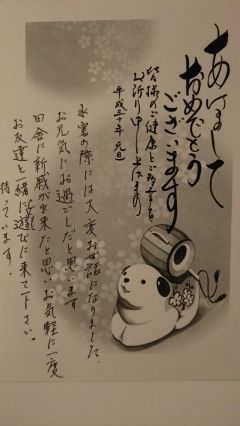 あけまして
おめでとう
ございます
皆様のご健康とご多幸を
お祈り申し上げます
平成三十年 元旦
水害の際には大変お世話になりました。
お元気にお過ごしだと思います
田舎に新戚が出来たと思いお気軽に一度
お友達と一緒に遊びに来て下さい。
待っています!